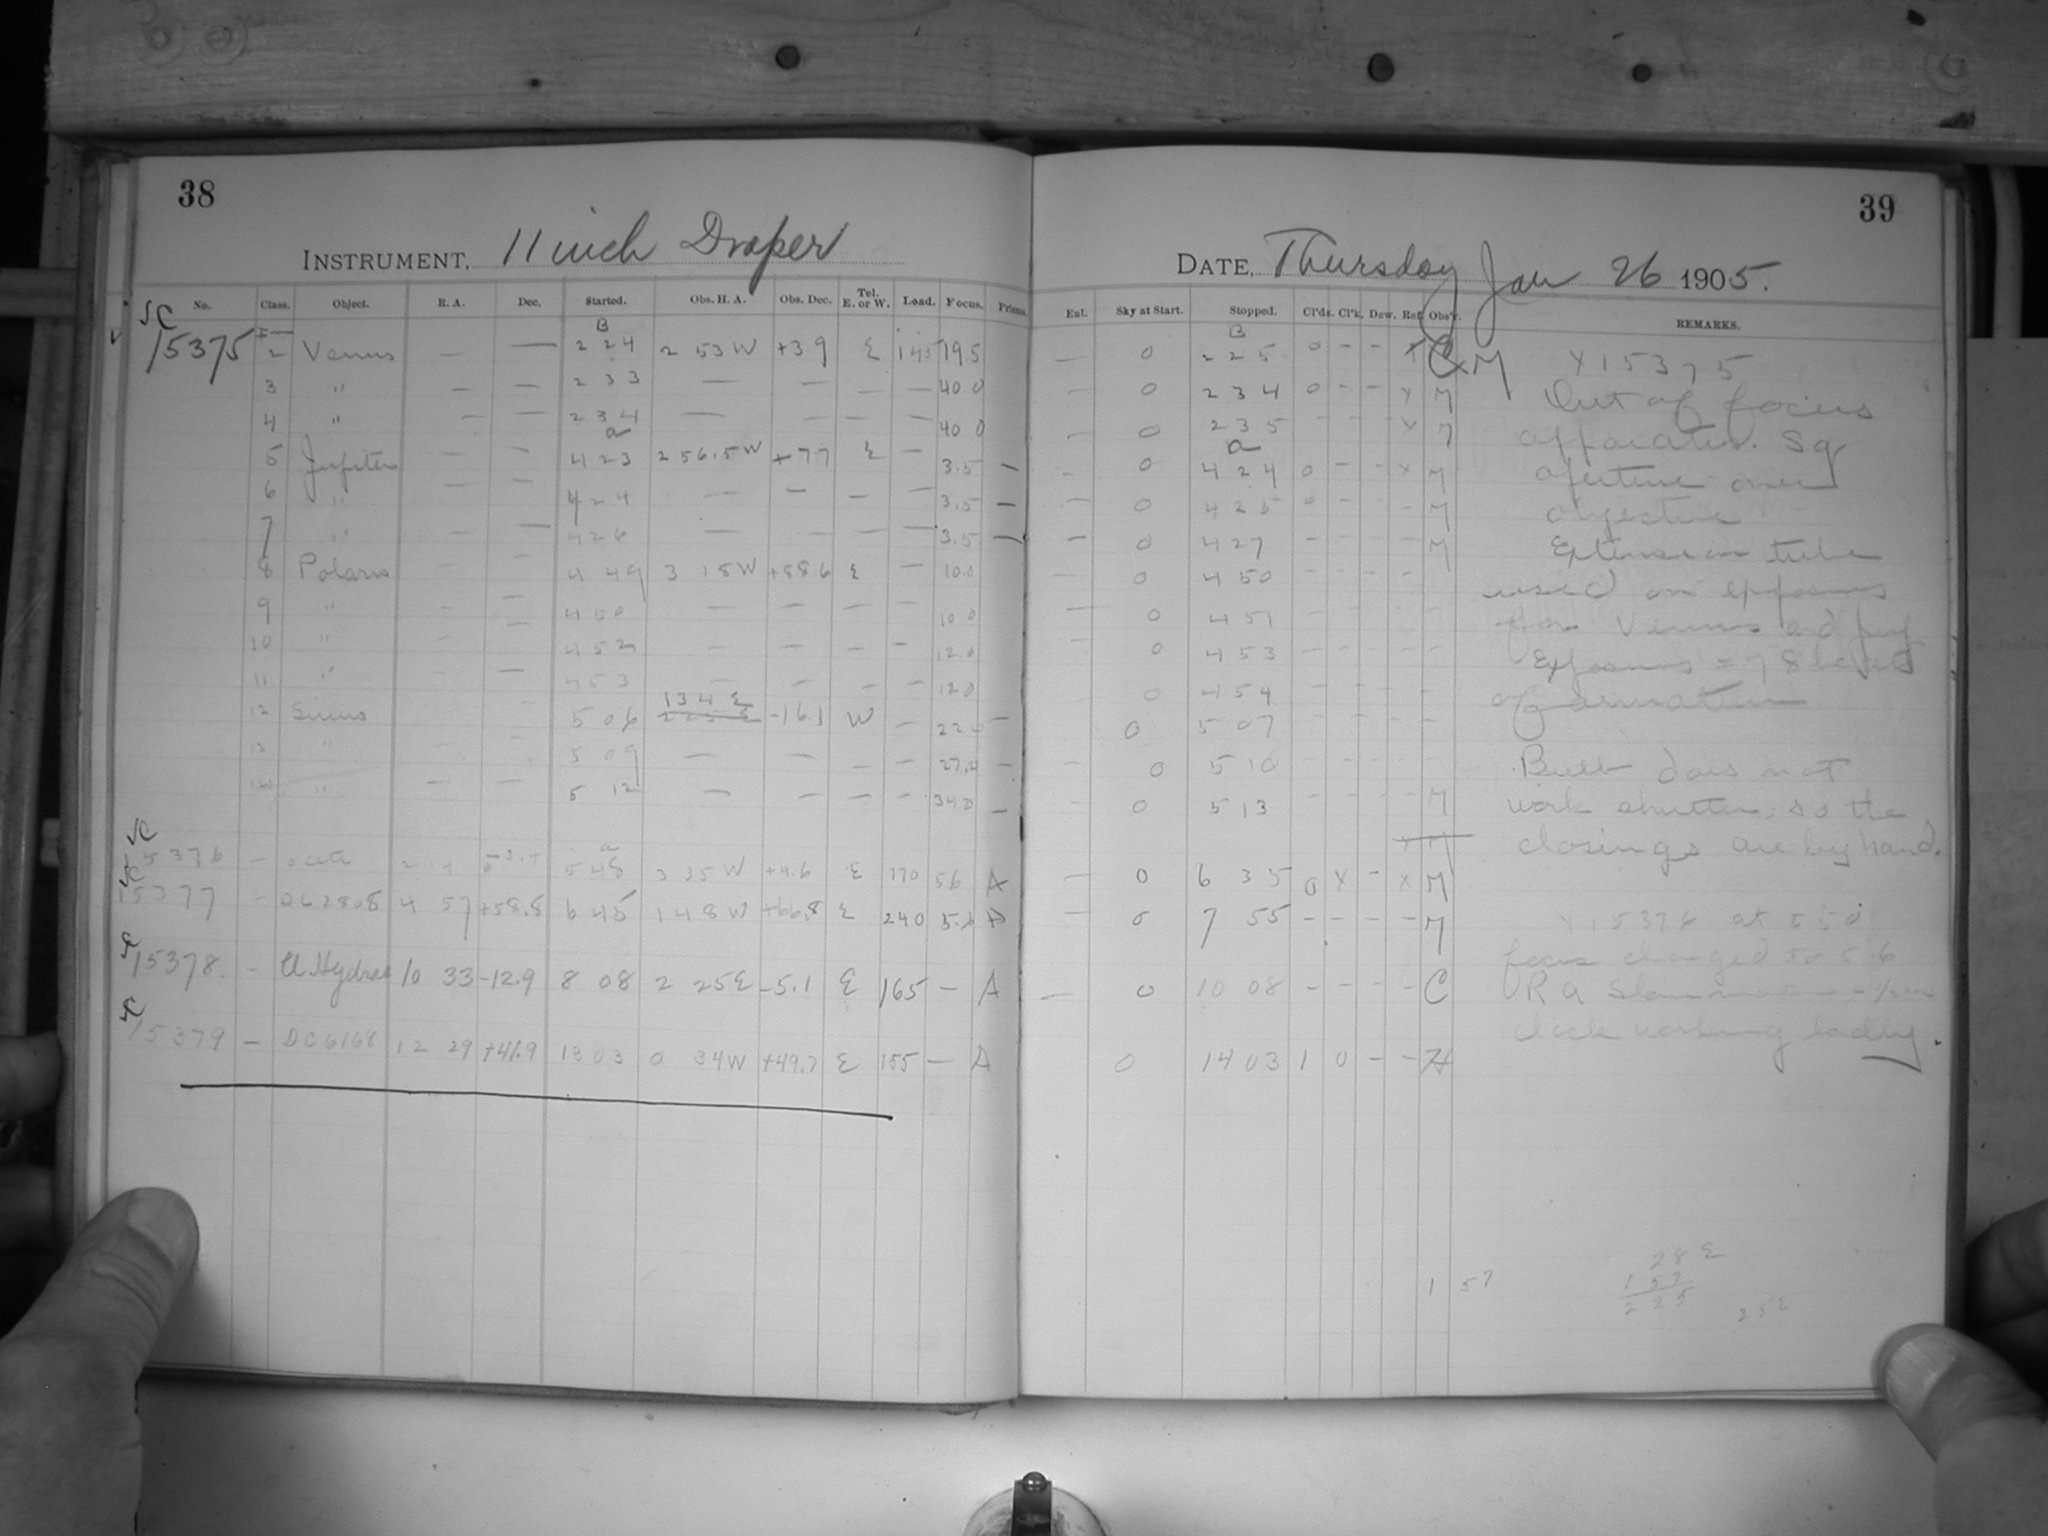 38
INSTRUMENT, 11 inch Draper
No. Class. Object. R. A. Dec. Started. Obs. H. A. Obs. Dec. Tel. E. or W. Load. Focus. Prisms.
JC
B
15375 2 Venus — — 2 24 2 53 W +39 E 145 19.5
3 " — — 2 33 — — — — 40 0
4 " — — 2 34 — — — — 40 0
a
5 Jupiter — — 4 23 2 56.5 W +77 E — 3.5 —
6 " — — 4 24 — — — — 3.5 —
7 " — — 4 26 — — — — 3.5 —
8 Polaris — — 4 49 3 18 W +88 6 E — 10.0
9 " — — 4 50 — — — — 10 0
10 " — — 4 52 — — — — 12 0
11 " — — 4 53 — — — — 12 0
1 34 E
12 Sirius — 5 06 2 25 E -16.1 W — 22 0 —
12 " — — 5 09 — — — — 27.0 —
" — — 5 12 — — — — 34 0 —
JC
15376 — 5 48 3 35 W +4.6 E 170 56 A
JC
15377 - DC 2808 4 57 +58.8 6 45 1 48 W +66.8 E 240 A
15378. — U Hydrae 10 33 -12.9 8 08 2 25 E -5.1 E 165 — A
15379 — DC 6168 12 29 +41.9 13 03 0 34 W +49.7 E 155 — A
39
DATE, Thursday Jan 26 1905.
Ent. Sky at Start. Stopped. Cl'ds. Cl'k. Dew. Ref. Obs'r. REMARKS.
B
— 0 2 25 0 - - x C & M
— 0 2 34 0 - - x M
- 0 2 35 - - - x M
a
- 0 4 24 0 - - x M
— 0 4 25 0 - - - M
— 0 4 27 - - - - M
— 0 4 50 - - - -
— 0 4 51 - - - -
0 4 53 - - - -
0 4 54 - - - -
0 5 07 - - - -
- 0 5 10 - - - -
— 0 5 13 - - - - M
x M
— 0 6 35 0 x - x M
— 0 7 55 - - - - M
— 0 10 08 - - - - C
0 14 03 1 0 - - H
x 15375
Out of focus
apparatus. Sq
aperture over
objective
Extension tube
used on exposures
for Venus and Jup
Exposures = 78
of
Bulb does not
work shutter, so the
closings are by hand.
x 15376 at 5 50
focus changed to 5.6
R A
clock working badly.
1 57
28 E
1 57
2 25
2 52